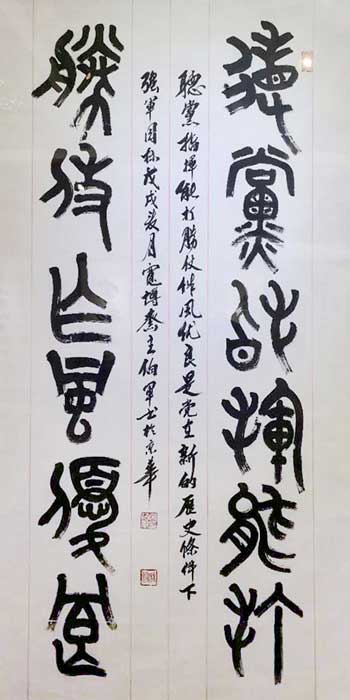 聽黨指揮能打
勝仗作風優良
聽黨指揮能打勝仗作風优良是党在新的歷史條件下
强軍目标戊戌夏月寬博齋主伯軍书於京華